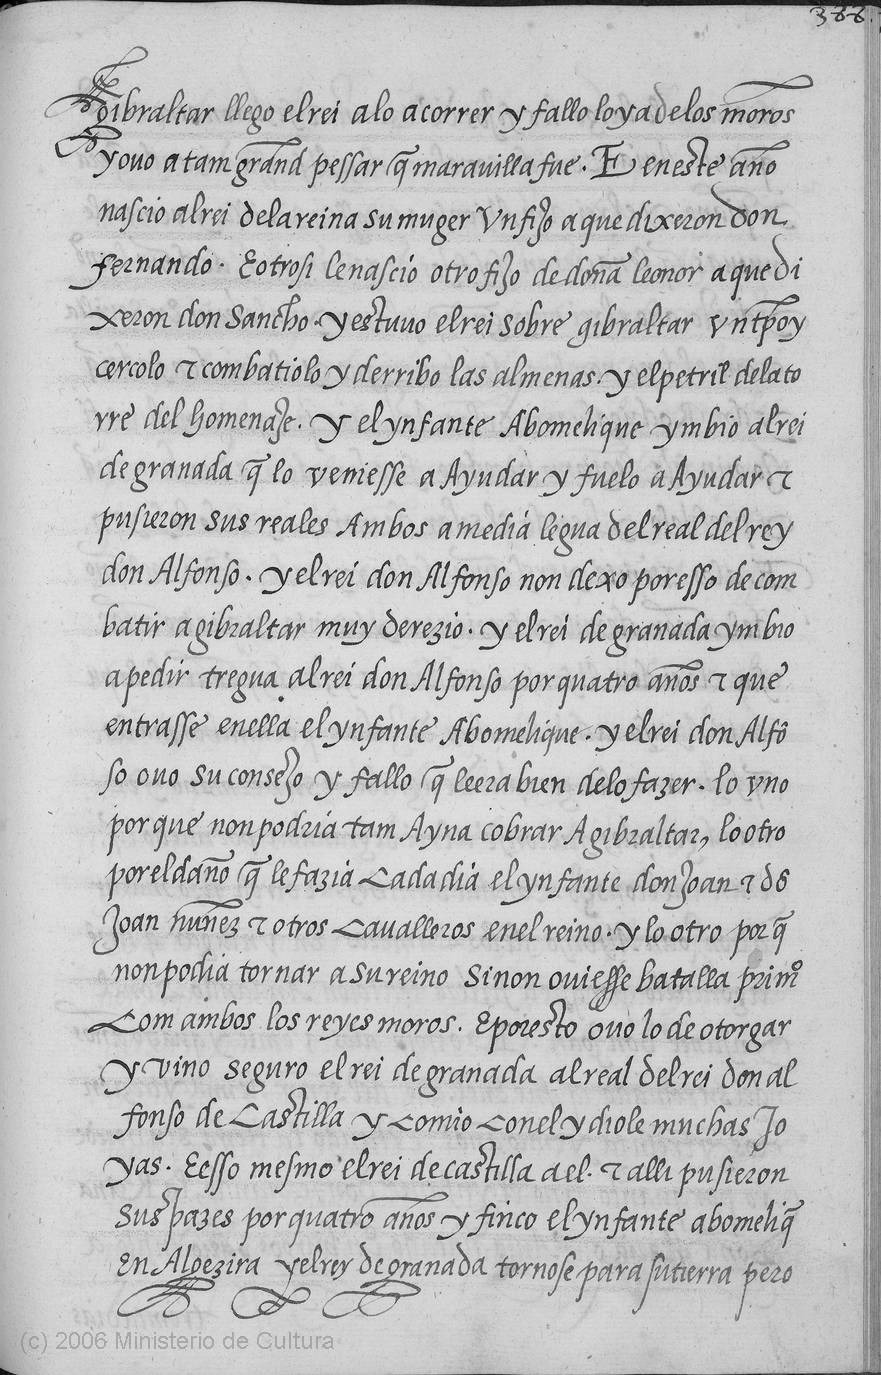 388.
gibraltar llego el rei a lo acorrer y fallo lo ya de los moros
y ouo a tam grand pessar q̃ marauilla fue. E en este año
nascio al rei de la reina su muger Vn fijo a que dixeron don
fernando. E otrosi le nascio otro fijo de doña leonor a que di
xeron don Sancho. y estuuo el rei sobre gibraltar vn tp̃o y
cercolo ⁊ combatiolo y derribo las almenas. y el petril de la to
rre del homenaje. y el ynfante Abomelique ymbio al rei
de granada q̃ lo veniesse a Ayudar y fuelo a Ayudar ⁊
pusieron sus reales Ambos a media legua del real del rey
don Alfonso. y el rei don Alfonso non dexo por esso de com
batir a gibraltar muy derezio. y el rei de granada ymbio
a pedir tregua al rei don Alfonso por quatro años ⁊ que
entrasse en ella el ynfante Abomelique. y el rei don Alfõ
so ouo su consejo y fallo q̃ le era bien de lo fazer. lo vno
por que non podria tam Ayna cobrar A gibraltar, lo otro
por el daño q̃ le fazia Cada dia el ynfante don Joan ⁊ dõ
Joan nuñez ⁊ otros Caualleros en el reino. y lo otro por q̃
non podia tornar a su reino Si non ouiesse batalla primº
Com ambos los reyes moros. E por esto ouo lo de otorgar
y vino seguro el rei de granada al real del rei don al
fonso de Castilla y comio con el y diole muchas Jo
yas. E esso mesmo el rei de castilla a el. ⁊ alli pusieron
Sus pazes por quatro años y finco el ynfante abomeliq̃
En Algezira y el rey de granada tornose para su tierra pero
(c) 2006 Ministerio de Cultura